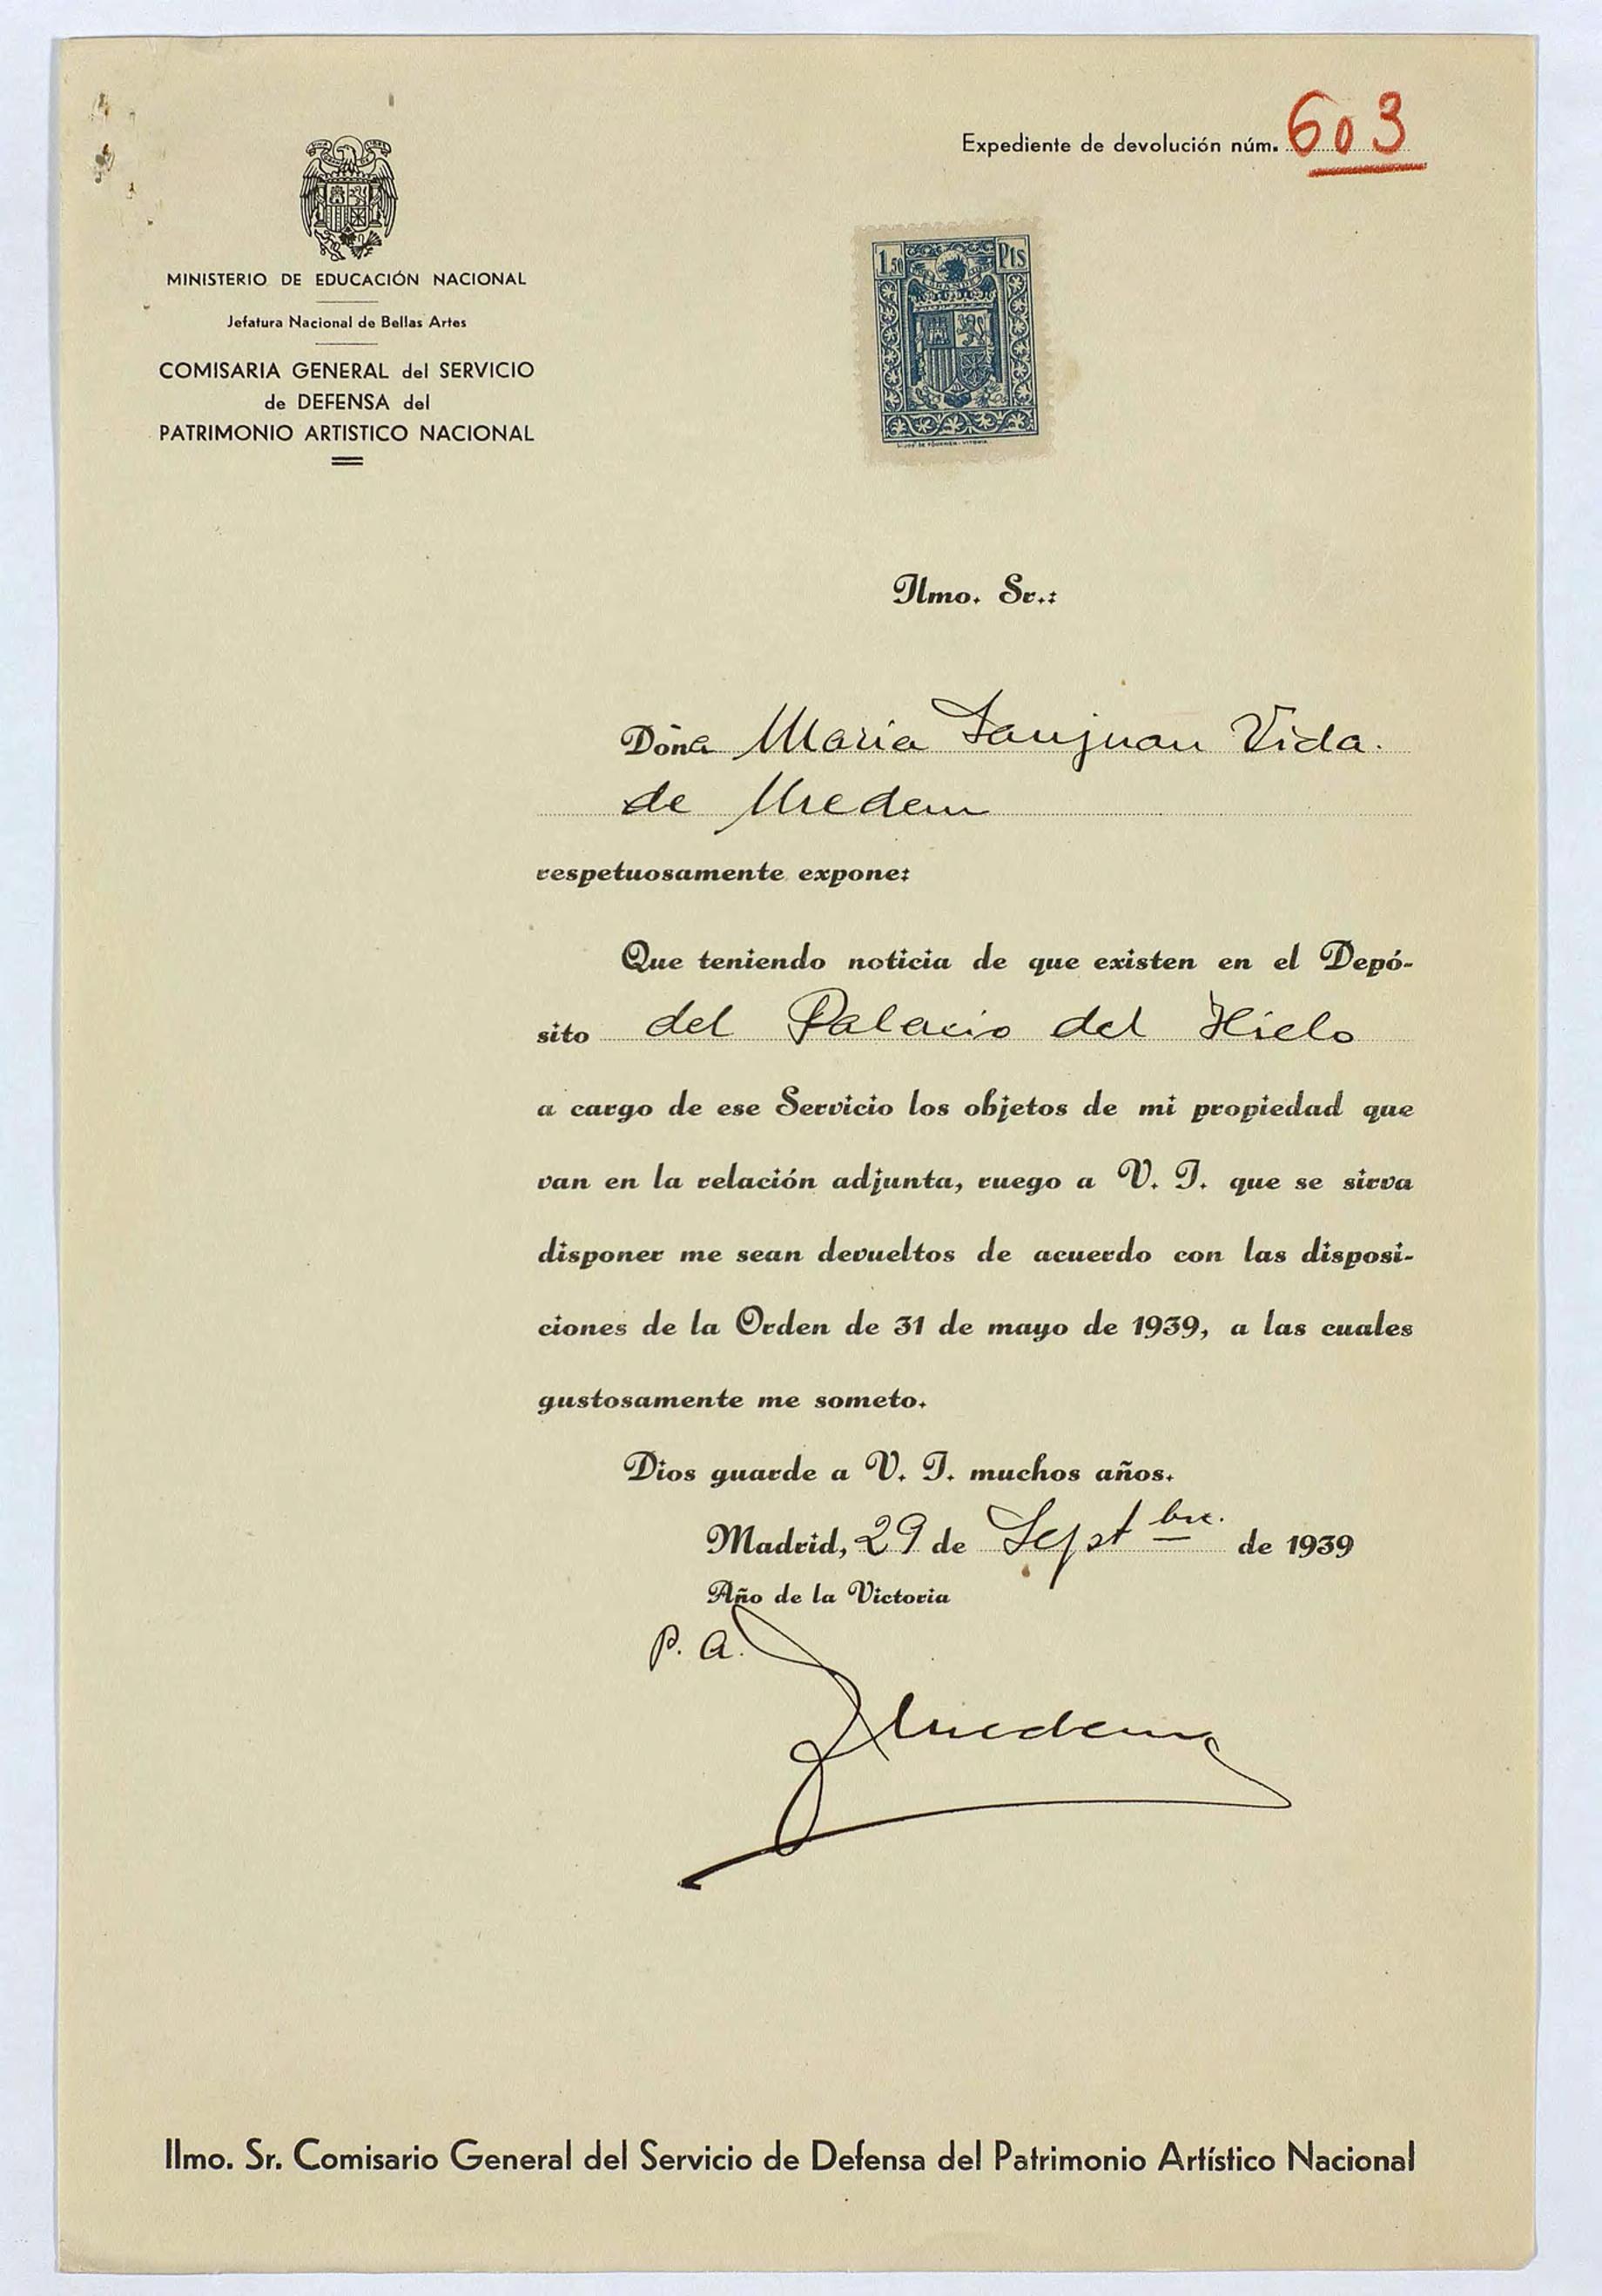 Expediente de devolución núm. 603
MINISTERIO DE EDUCACIÓN NACIONAL
Jefatura Nacional de Bellas Artes
COMISARIA GENERAL del SERVICIO
de DEFENSA del
PATRIMONIO ARTISTICO NACIONAL
1,50 Pts
Ilmo. Sr.:
Doña Maria Sanjuan Vida.
de Medem
respetuosamente expone:
Que teniendo noticia de que existen en el Depó-
sito del Palacio del Hielo
a cargo de ese Servicio los objetos de mi propiedad que
van en la relación adjunta, ruego a V. I. que se sirva
disponer me sean devueltos de acuerdo con las disposi-
ciones de la Orden de 31 de mayo de 1939, a las cuales
gustosamente me someto.
Dios guarde a V. I. muchos años.
Madrid, 29 de Septbre. de 1939
Año de la Victoria
P. A.
Medem
Ilmo. Sr. Comisario General del Servicio de Defensa del Patrimonio Artístico Nacional